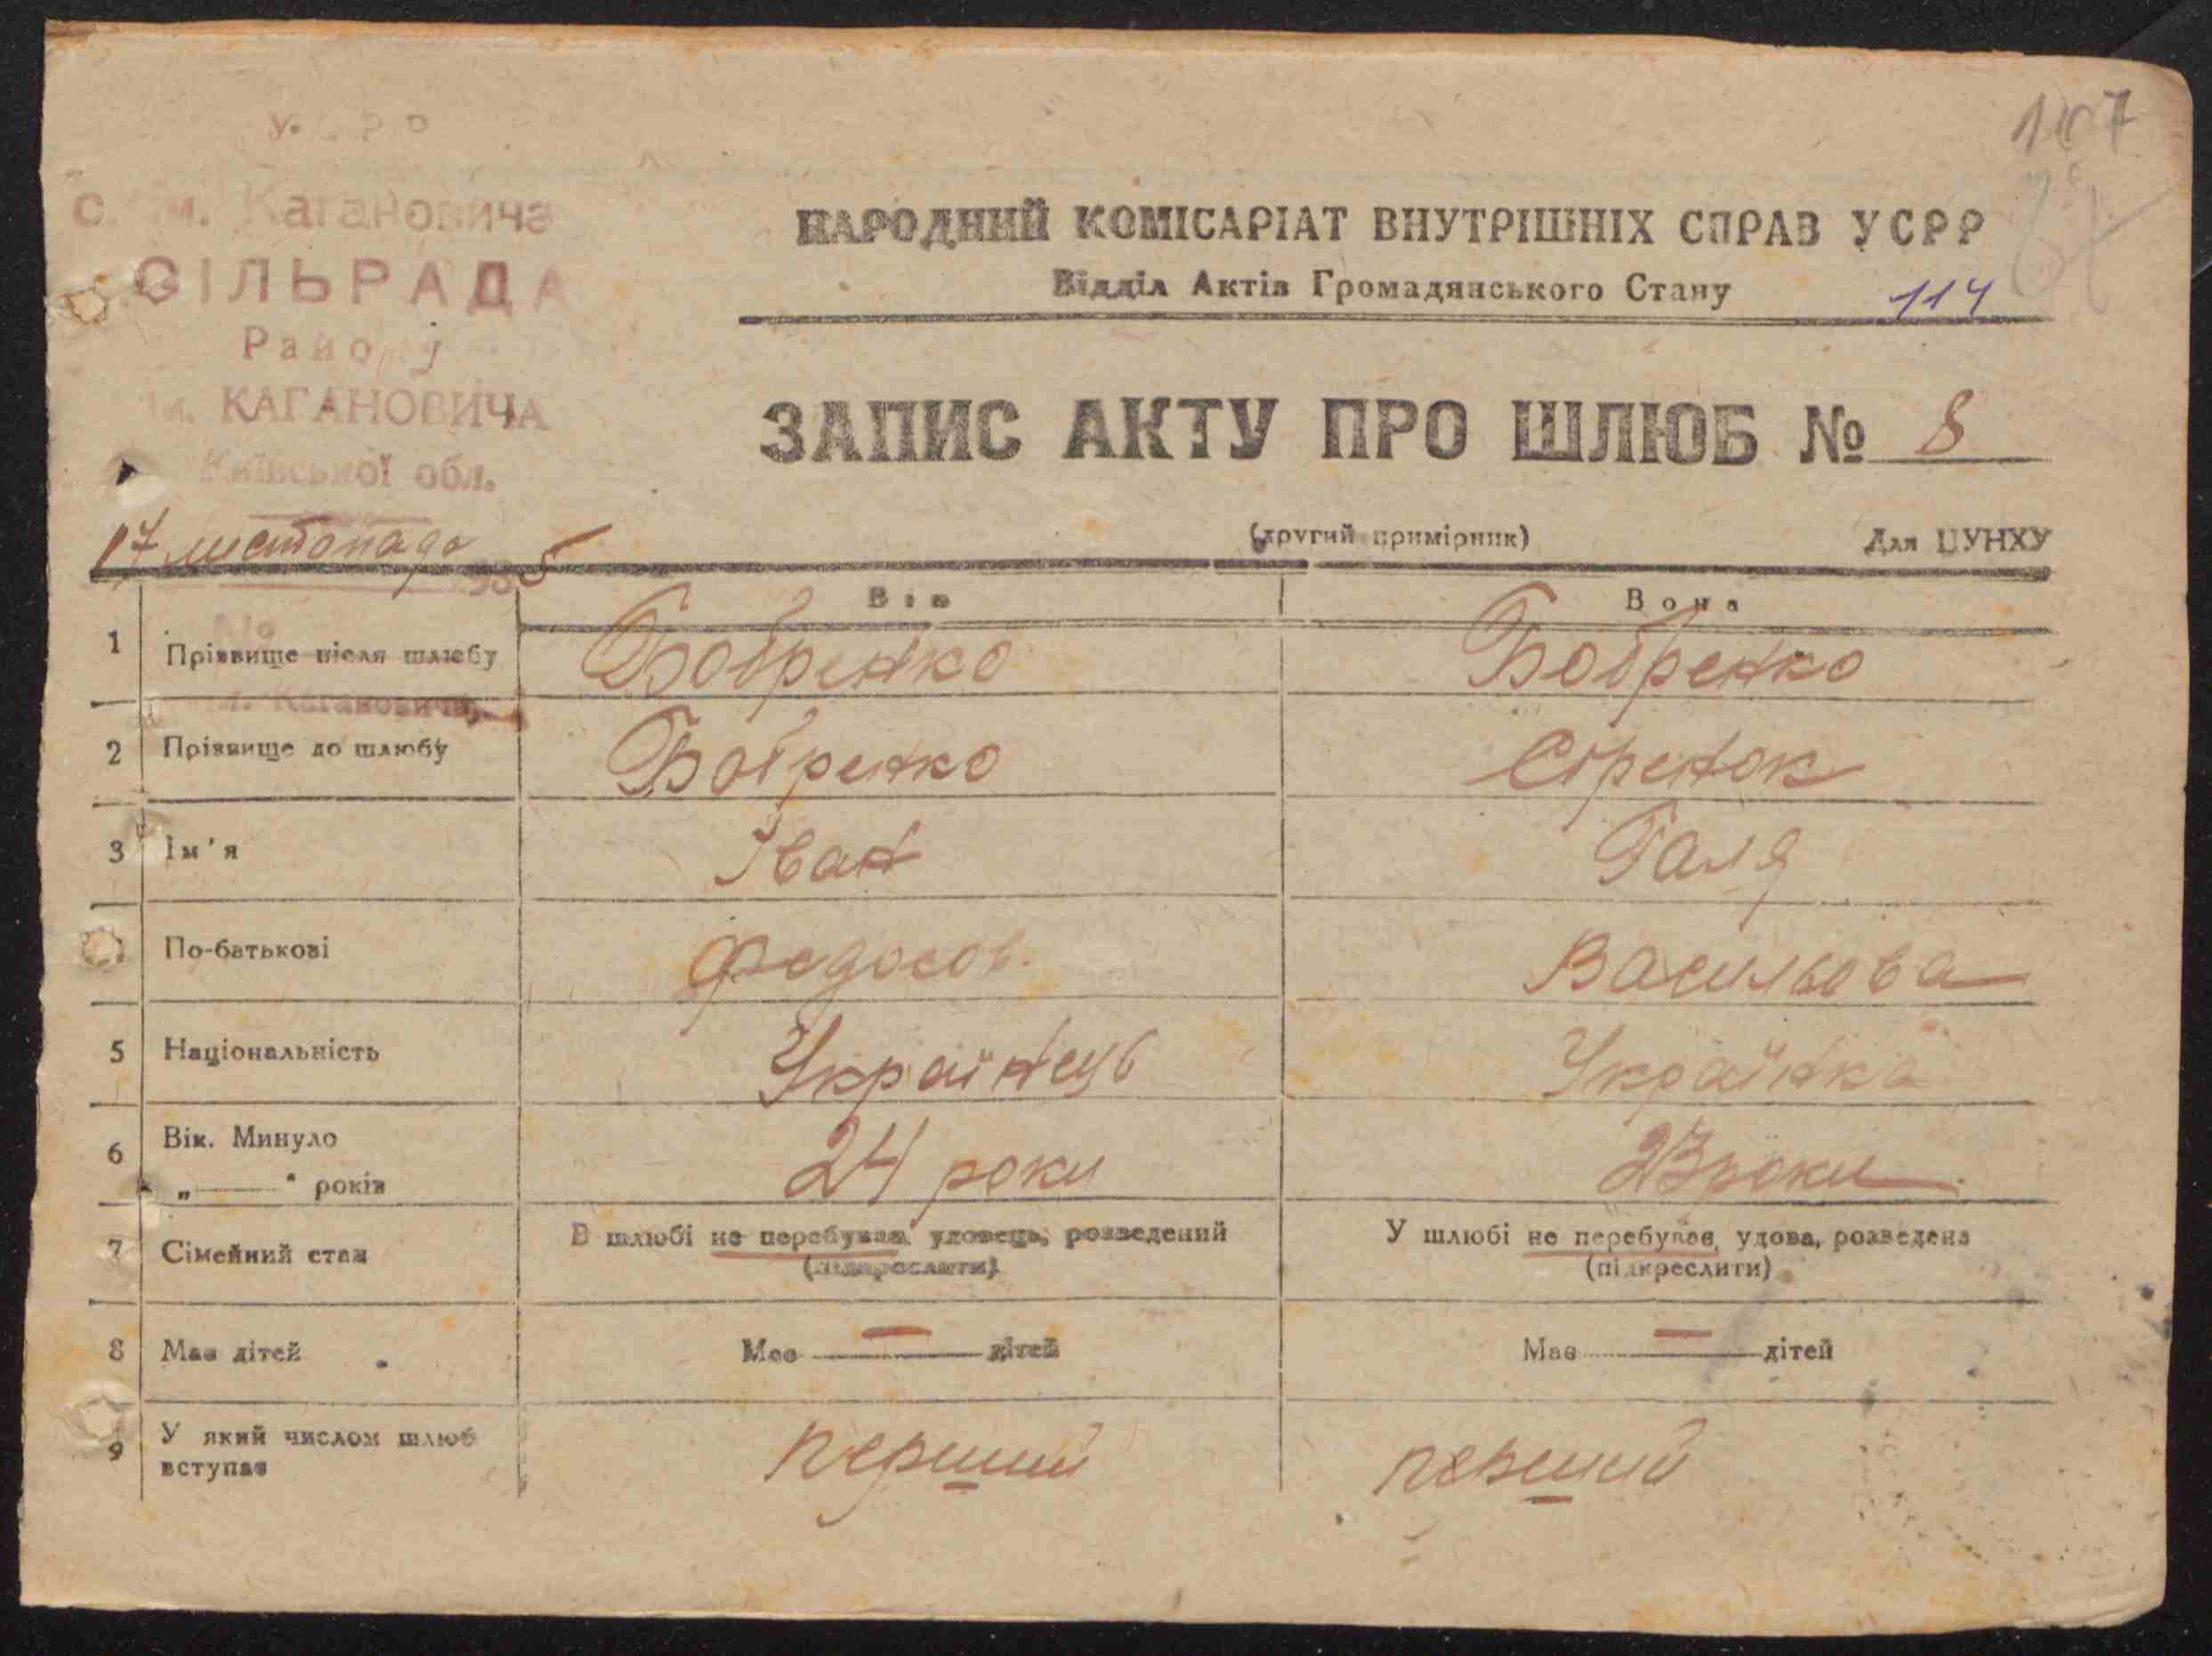 107
с. ім. Кагановича
СІЛЬРАДА
Району
ім. КАГАНОВИЧА
Київської обл.
17 листопада 1935
НАРОДНИЙ КОМІСАРІАТ ВНУТРІШНІХ СПРАВ УСРР
Відділ Актів Громадянського Стану 114
ЗАПИС АКТУ ПРО ШЛЮБ № 8
(другий примірник) Для ЦУНХУ
Він Вона
1 Прізвище після шлюбу Бобренко Бобренко
м. Кагановича
2 Прізвище до шлюбу Бобренко Сіренок
3 Ім'я Іван Галя
По-батькові Федосов. Васильова
5 Національність Українець Українка
6 Вік. Минуло 24 роки 23 роки
„ — “ років
7 Сімейний стан В шлюбі не перебував, удовець, розведений У шлюбі не перебував, удова, розведена
(підкреслити) (підкреслити)
8 Має дітей Має — дітей Має — дітей
9 У який числом шлюб перший перший
вступає